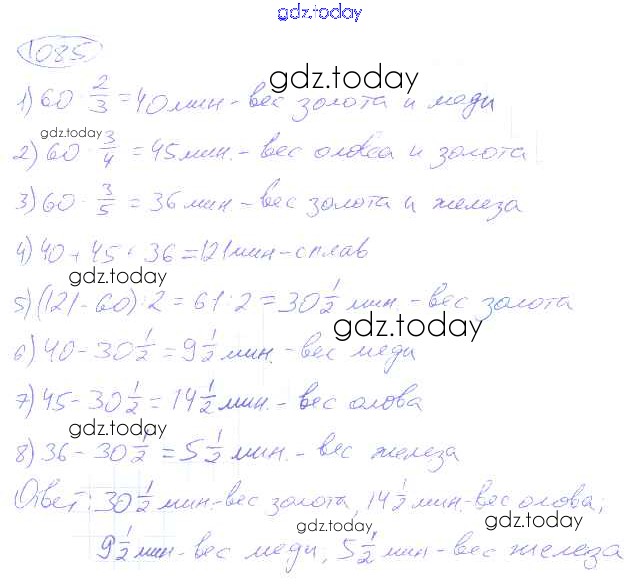 gdz.today
1085
gdz.today
1) 60 · 2/3 = 40 мин - вес золота и меди
gdz.today
2) 60 · 3/4 = 45 мин. - вес олова и золота
3) 60 · 3/5 = 36 мин - вес золота и железа
4) 40 + 45 + 36 = 121 мин - сплав
gdz.today
5) (121 - 60) : 2 = 61 : 2 = 30 1/2 мин. - вес золота
gdz.today
6) 40 - 30 1/2 = 9 1/2 мин. - вес меди
7) 45 - 30 1/2 = 14 1/2 мин. - вес олова
gdz.today
8) 36 - 30 1/2 = 5 1/2 мин. - вес железа
Ответ: 30 1/2 мин. - вес золота, 14 1/2 мин. - вес олова;
gdz.today
gdz.today
9 1/2 мин - вес меди; 5 1/2 мин - вес железа